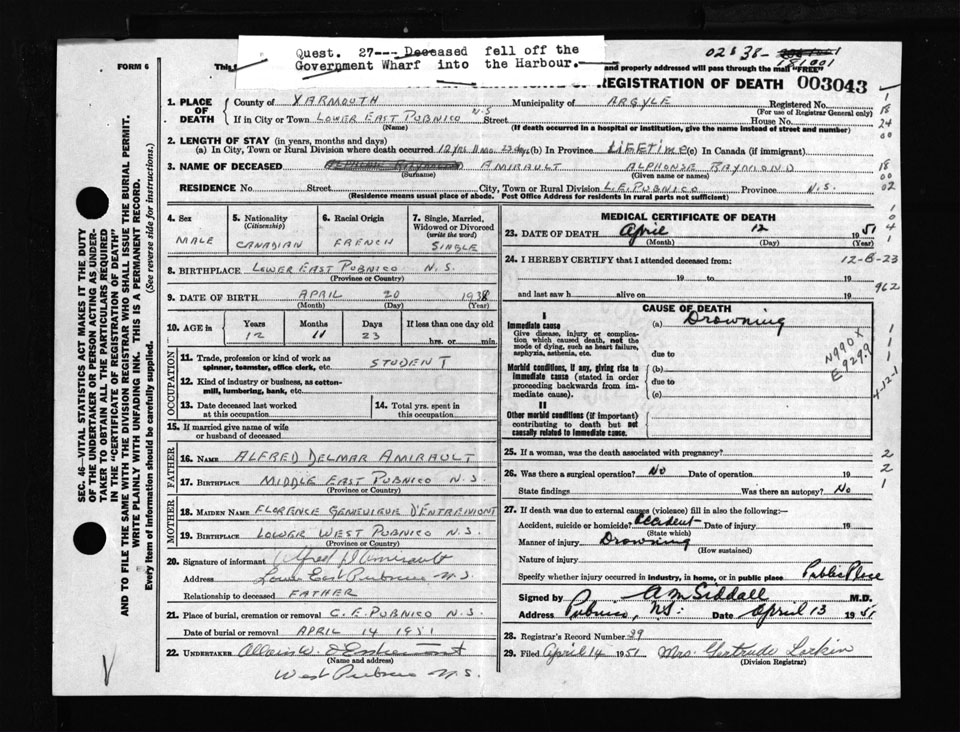 Quest. 27--- Deceased fell off the
Government Wharf into the Harbour.
02838-
181001
FORM 6
This f
and properly addressed will pass through the mail "FREE"
REGISTRATION OF DEATH 003043
1. PLACE OF DEATH County of YARMOUTH Municipality of ARGYLE Registered No.
(For use of Registrar General only)
If in City or Town LOWER EAST PUBNICO N.S Street House No.
(Name) (If death occurred in a hospital or institution, give the name instead of street and number)
2. LENGTH OF STAY (in years, months and days)
(a) In City, Town or Rural Division where death occurred 12 yrs 11 mo. 23 days (b) In Province LIFETIME (c) In Canada (if immigrant)
3. NAME OF DECEASED AMIRAULT ALPHONSE RAYMOND
(Surname) (Given name or names)
RESIDENCE No. Street City, Town or Rural Division L.E. PUBNICO Province N.S.
(Residence means usual place of abode. Post Office Address for residents in rural parts not sufficient)
4. Sex MALE
5. Nationality (Citizenship) CANADIAN
6. Racial Origin FRENCH
7. Single, Married, Widowed or Divorced (write the word) SINGLE
8. BIRTHPLACE LOWER EAST PUBNICO N.S.
(Province or Country)
9. DATE OF BIRTH APRIL 20 1938
(Month) (Day) (Year)
10. AGE in Years Months Days If less than one day old
12 11 23 hrs. or min.
OCCUPATION
11. Trade, profession or kind of work as STUDENT
spinner, teamster, office clerk, etc.
12. Kind of industry or business, as cotton-
mill, lumbering, bank, etc.
13. Date deceased last worked
at this occupation
14. Total yrs. spent in
this occupation
15. If married give name of wife
or husband of deceased
FATHER
16. NAME ALFRED DELMAR AMIRAULT
17. BIRTHPLACE MIDDLE EAST PUBNICO N.S.
(Province or Country)
MOTHER
18. MAIDEN NAME FLORENCE GENEVIEVE D'ENTREMONT
19. BIRTHPLACE LOWER WEST PUBNICO N.S.
(Province or Country)
20. Signature of informant Alfred D Amirault
Address Lower East Pubnico N.S.
Relationship to deceased FATHER
21. Place of burial, cremation or removal C. E. PUBNICO N.S.
Date of burial or removal APRIL 14 1951
22. UNDERTAKER Allain W. d'Entremont
(Name and address)
West Pubnico N.S.
MEDICAL CERTIFICATE OF DEATH
23. DATE OF DEATH April 12 1951
(Month) (Day) (Year)
24. I HEREBY CERTIFY that I attended deceased from:
12-B-23
19 to 19
962
and last saw h alive on 19
CAUSE OF DEATH
I
Immediate cause (a) Drowning
Give disease, injury or complica-
tion which caused death, not the
mode of dying, such as heart failure,
asphyxia, asthenia, etc. due to
Morbid conditions, if any, giving rise to (b)
immediate cause (stated in order due to
proceeding backwards from im-
mediate cause). (c)
II
Other morbid conditions (if important)
contributing to death but not
causally related to immediate cause.
N990 X
E929.9
4-12-1
25. If a woman, was the death associated with pregnancy?
26. Was there a surgical operation? No Date of operation 19
State findings Was there an autopsy? No
27. If death was due to external causes (violence) fill in also the following:-
Accident, suicide or homicide? Accident Date of injury 19
(State which)
Manner of injury Drowning
(How sustained)
Nature of injury
Specify whether injury occurred in industry, in home, or in public place Public Place
Signed by A M Siddall M.D.
Address Pubnico, N.S. Date April 13 1951
28. Registrar's Record Number 39
29. Filed April 14 1951 Mrs. Gertrude Larkin
(Division Registrar)
SEC. 46—VITAL STATISTICS ACT MAKES IT THE DUTY
OF THE UNDERTAKER OR PERSON ACTING AS UNDER-
TAKER TO OBTAIN ALL THE PARTICULARS REQUIRED
IN THE "CERTIFICATE OF REGISTRATION OF DEATH"
AND TO FILE THE SAME WITH THE DIVISION REGISTRAR WHO SHALL ISSUE THE BURIAL PERMIT.
WRITE PLAINLY WITH UNFADING INK. THIS IS A PERMANENT RECORD.
Every item of information should be carefully supplied. (See reverse side for instructions.)